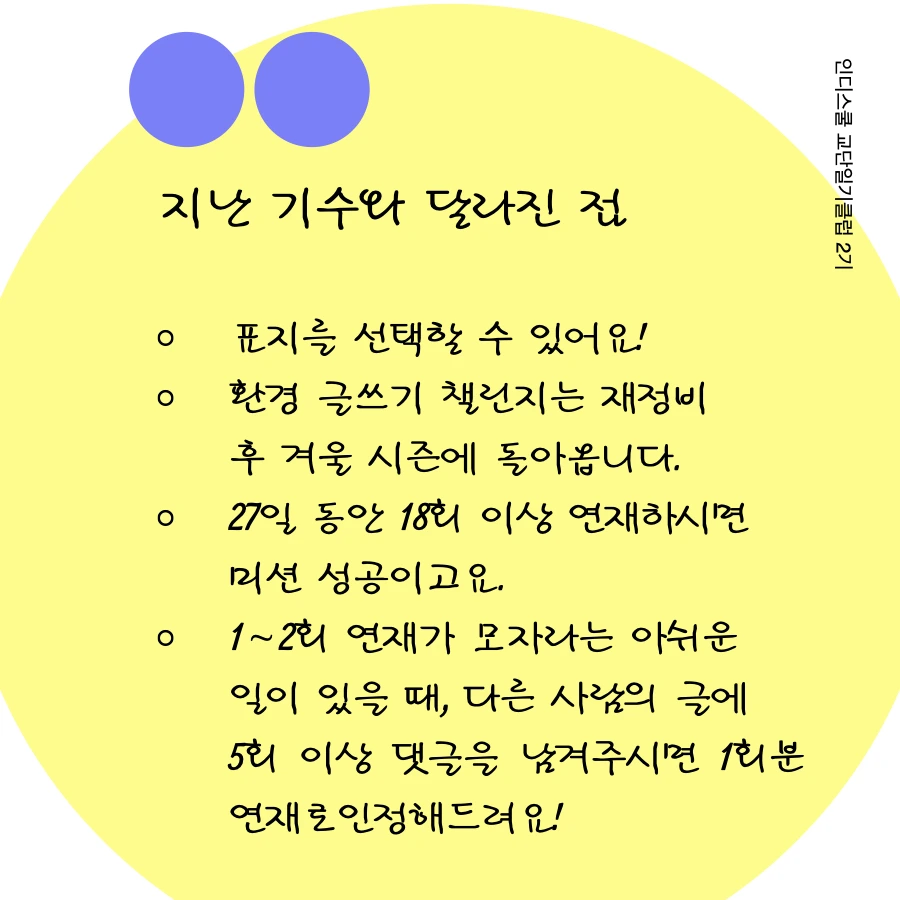 인디스쿨 교단일기클럽 2기
지난 기수와 달라진 점
표지를 선택할 수 있어요!
환경 글쓰기 챌린지는 재정비
후 겨울 시즌에 돌아옵니다.
27일 동안 18회 이상 연재하시면
미션 성공이고요.
1~2회 연재가 모자라는 아쉬운
일이 있을 때, 다른 사람의 글에
5회 이상 댓글을 남겨주시면 1회분
연재로인정해드려요!